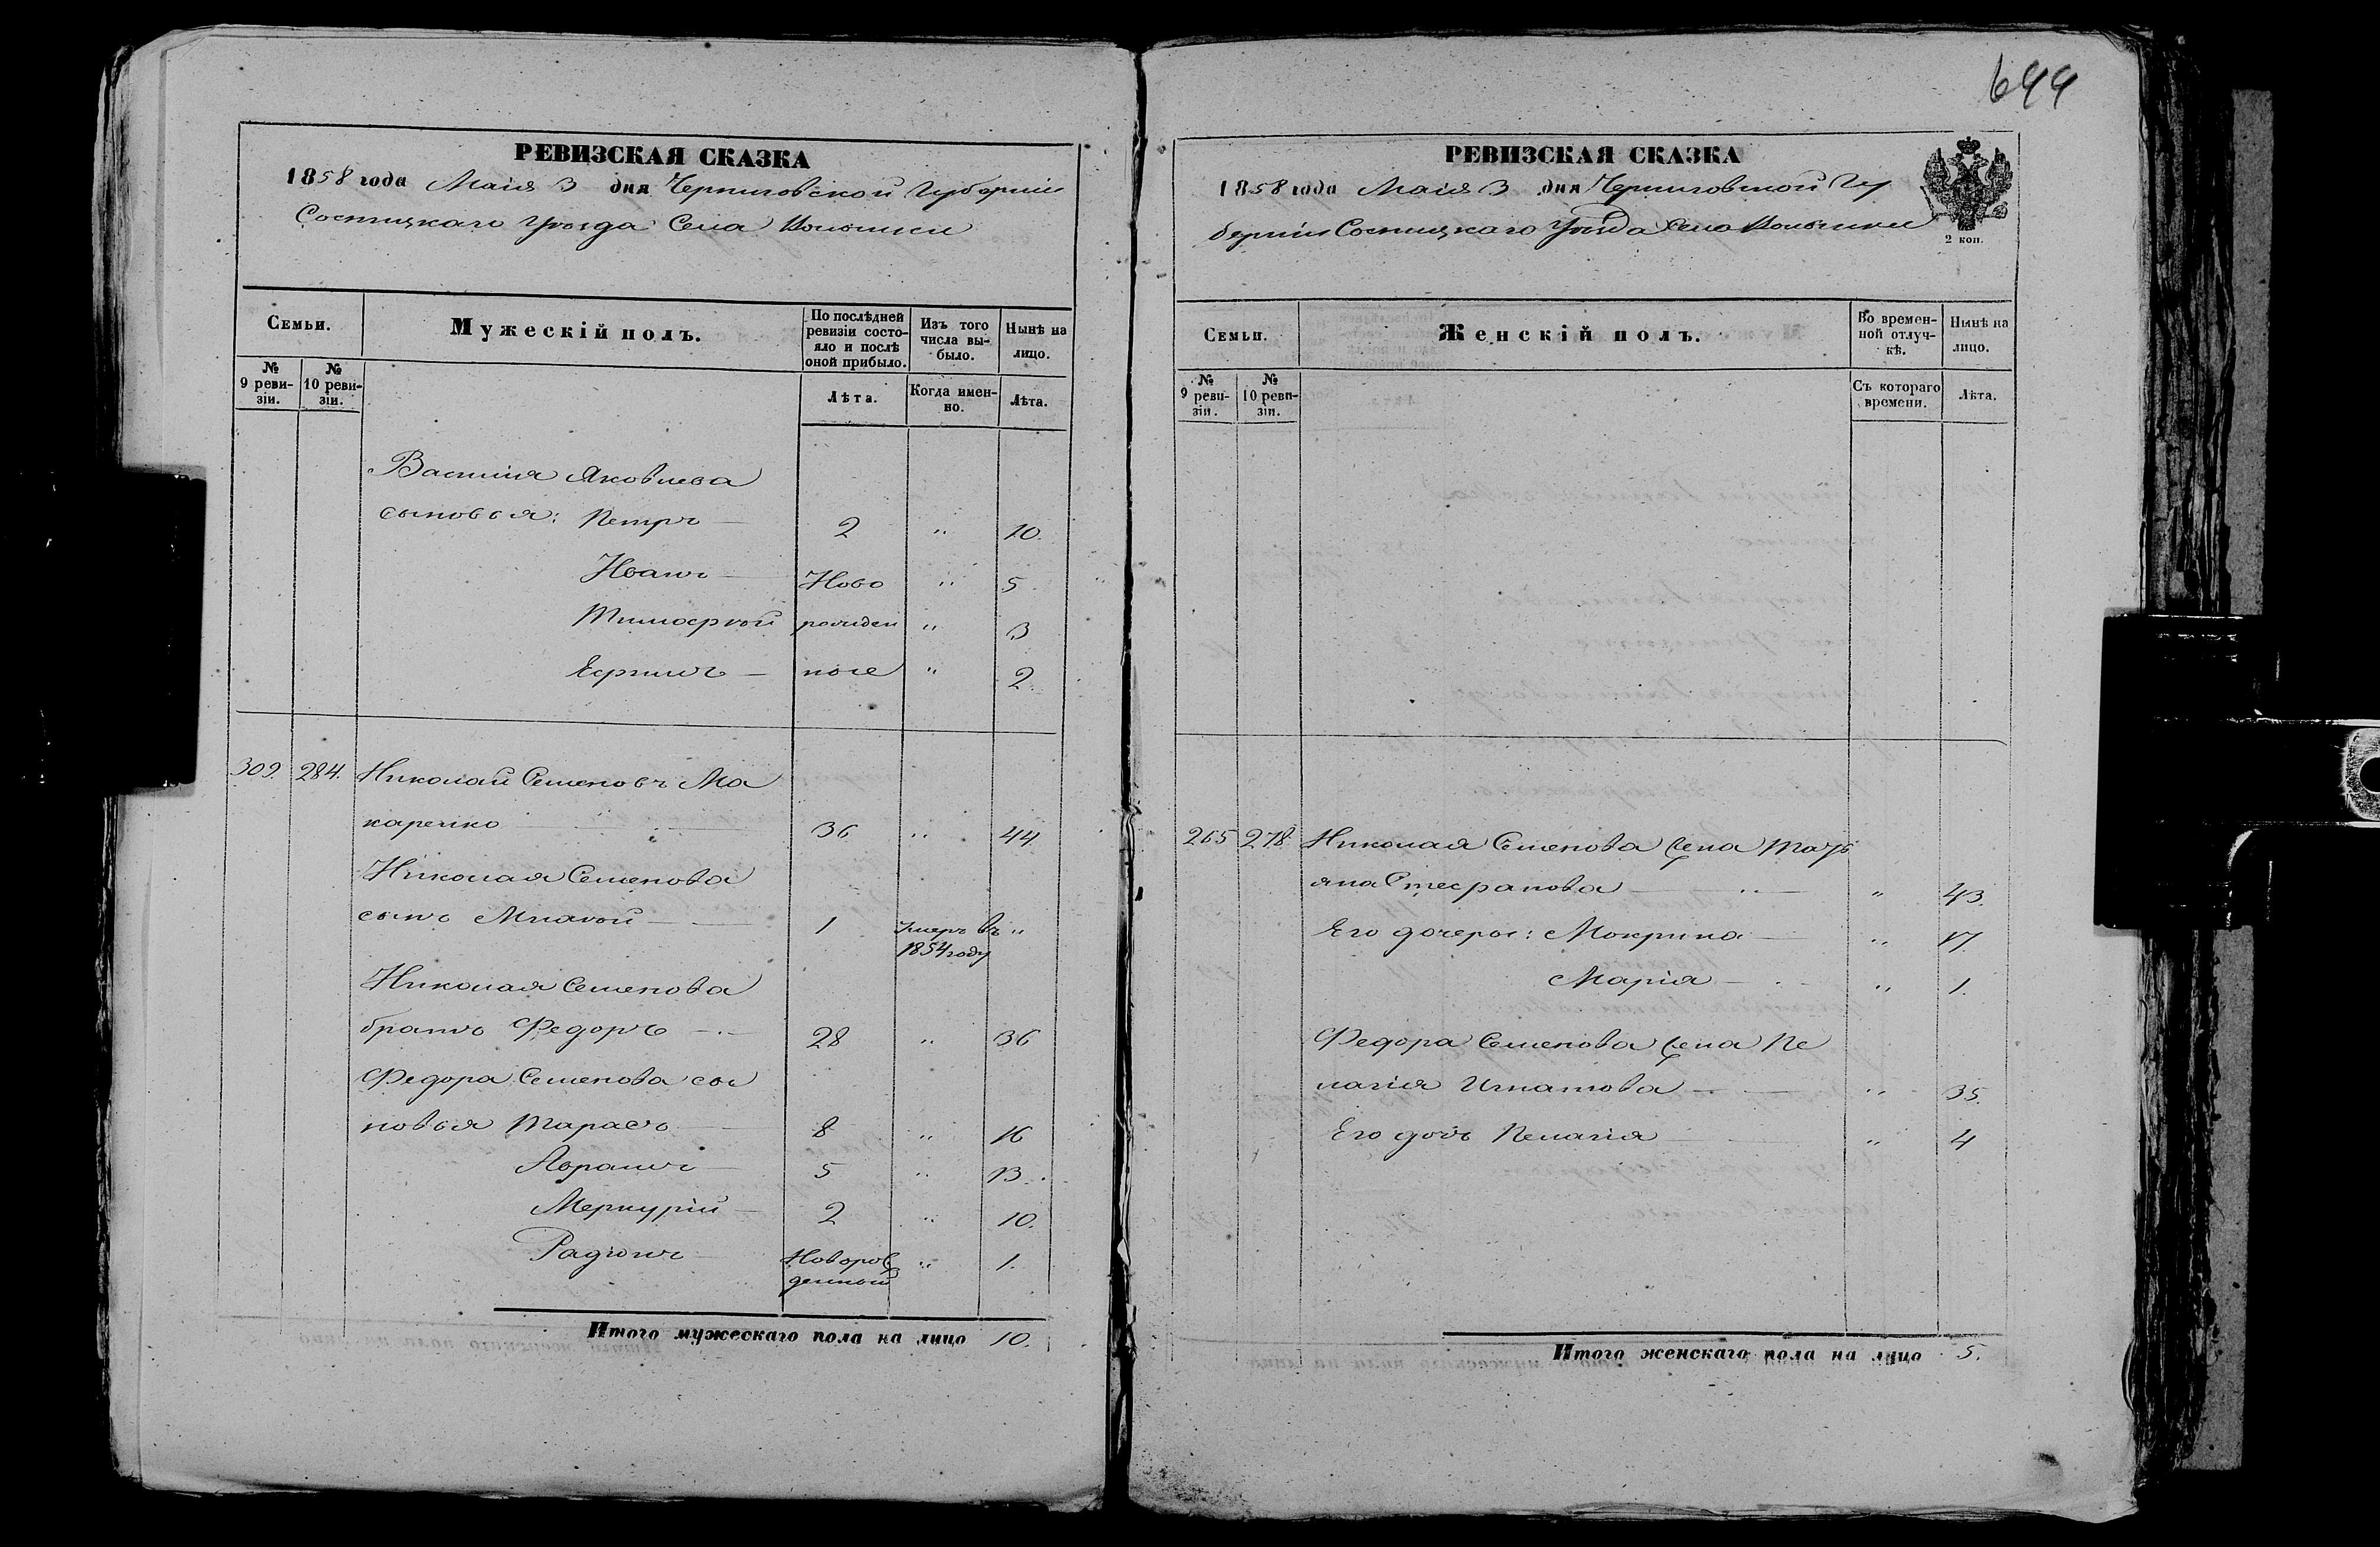 644
РЕВИЗСКАЯ СКАЗКА
1858 года Маія 3 дня Черниговской Губерніи
Сосницкаго Уѣзда Села
Семьи.
Мужескій полъ.
По послѣдней ревизіи состояло и послѣ оной прибыло.
Изъ того числа выбыло.
Нынѣ на лицо.
№ 9 ревизіи.
№ 10 ревизіи.
Лѣта.
Когда именно.
Лѣта.
Василія Яковлева
сыновья: Петръ — 2 " 10.
Иванъ — Ново " 5
Тимофей рожден " 3
Ефимъ — ные " 2.
309. 284. Николай Семеновъ Ма
каренко — 36 " 44
Николая Семенова
сынъ — 1 Умеръ въ "
1854 году
Николая Семенова
братъ Федоръ — 28 " 36
Федора Семенова сы
новья Тарасъ 8 " 16
Аврамъ — 5 " 13.
Меркурій — 2 " 10.
Радіонъ — Новорож " 1.
денный
Итого мужескаго пола на лицо 10.
РЕВИЗСКАЯ СКАЗКА
1858 года Маія 3 дня Черниговской Гу
берніи Сосницкаго Уѣзда Села
2 коп.
Семьи.
Женскій полъ.
Во временной отлучкѣ.
Нынѣ на лицо.
№ 9 ревизіи.
№ 10 ревизіи.
Съ котораго времени.
Лѣта.
265 278. Николая Семенова жена Тать
яна Стефанова — " 43.
Его дочеры: Мокрина — " 17.
Марія — " 1.
Федора Семенова жена Пе
лагія Игнатова — " 35.
Его дочь Пелагія — " 4
Итого женскаго пола на лицо 5.